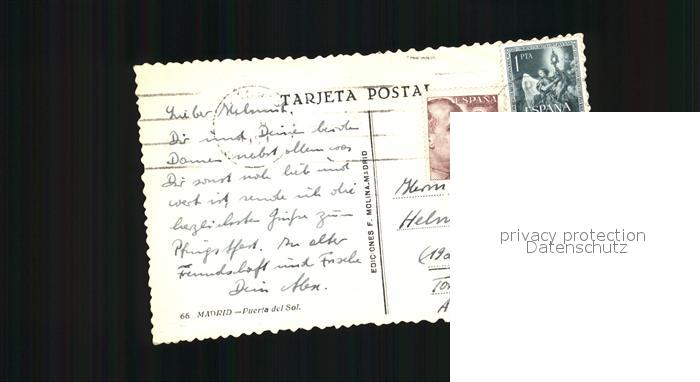 TARJETA POSTAL
1 PTA
ESPAÑA
ESPAÑA
Lieber Helmut,
Dir und Deine beiden
Damen nebst allem was
Dir sonst noch lieb und
wert ist, sende ich die
herzlichsten Grüße zum
Pfingstfest. In alter
Freundschaft und Frische
Dein Alex.
66. MADRID – Puerta del Sol.
EDICIONES F. MOLINA-MADRID
Herrn
Helm
(19a
Tor
A
privacy protection
Datenschutz